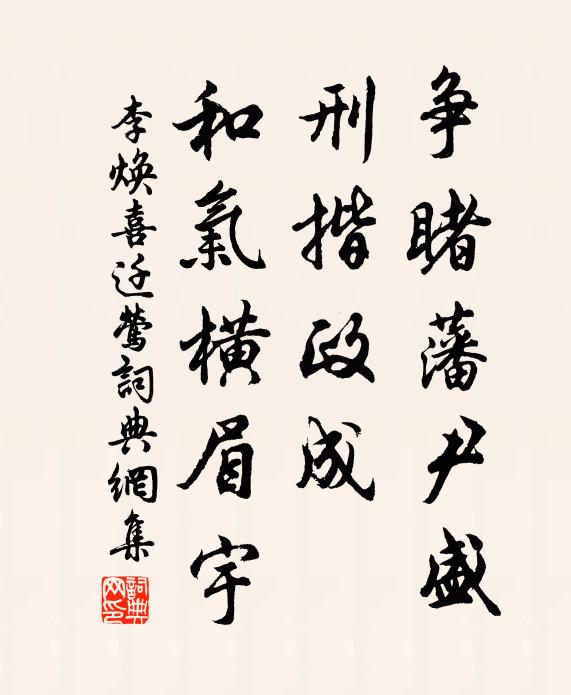 争睹藩尹盛
刑揩政成
和氣橫眉宇
李焕喜迁鶯詞典網集
詞典网印